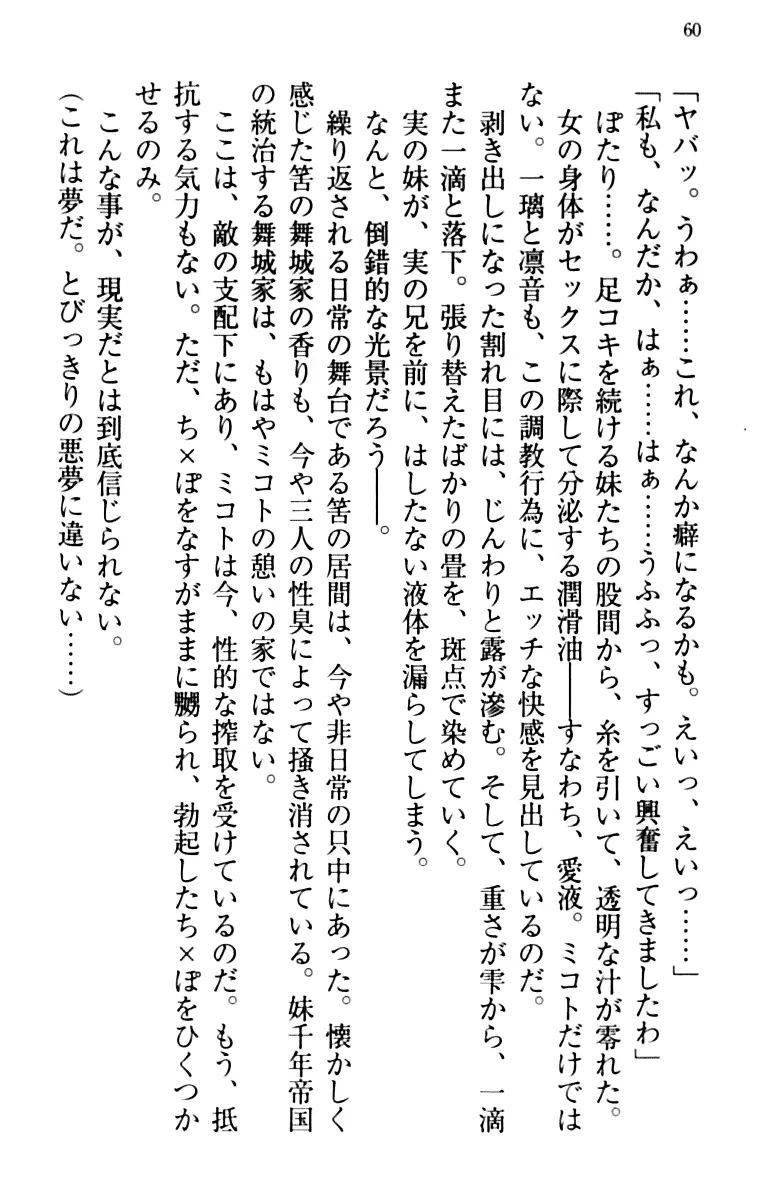 60
「ヤバッ。うわぁ……これ、なんか癖になるかも。えいっ、えいっ……」
「私も、なんだか、はぁ……はぁ……うふふっ、すっごい興奮してきましたわ」
ぽたり……。足コキを続ける妹たちの股間から、糸を引いて、透明な汁が零れた。
女の身体がセックスに際して分泌する潤滑油――すなわち、愛液。ミコトだけでは
ない。一璃と凛音も、この調教行為に、エッチな快感を見出しているのだ。
剥き出しになった割れ目には、じんわりと露が滲む。そして、重さが雫から、一滴
また一滴と落下。張り替えたばかりの畳を、斑点で染めていく。
実の妹が、実の兄を前に、はしたない液体を漏らしてしまう。
なんと、倒錯的な光景だろう――。
繰り返される日常の舞台である筈の居間は、今や非日常の只中にあった。懐かしく
感じた筈の舞城家の香りも、今や三人の性臭によって掻き消されている。妹千年帝国
の統治する舞城家は、もはやミコトの憩いの家ではない。
ここは、敵の支配下にあり、ミコトは今、性的な搾取を受けているのだ。もう、抵
抗する気力もない。ただ、ち×ぽをなすがままに嬲られ、勃起したち×ぽをひくつか
せるのみ。
こんな事が、現実だとは到底信じられない。
(これは夢だ。とびっきりの悪夢に違いない……)